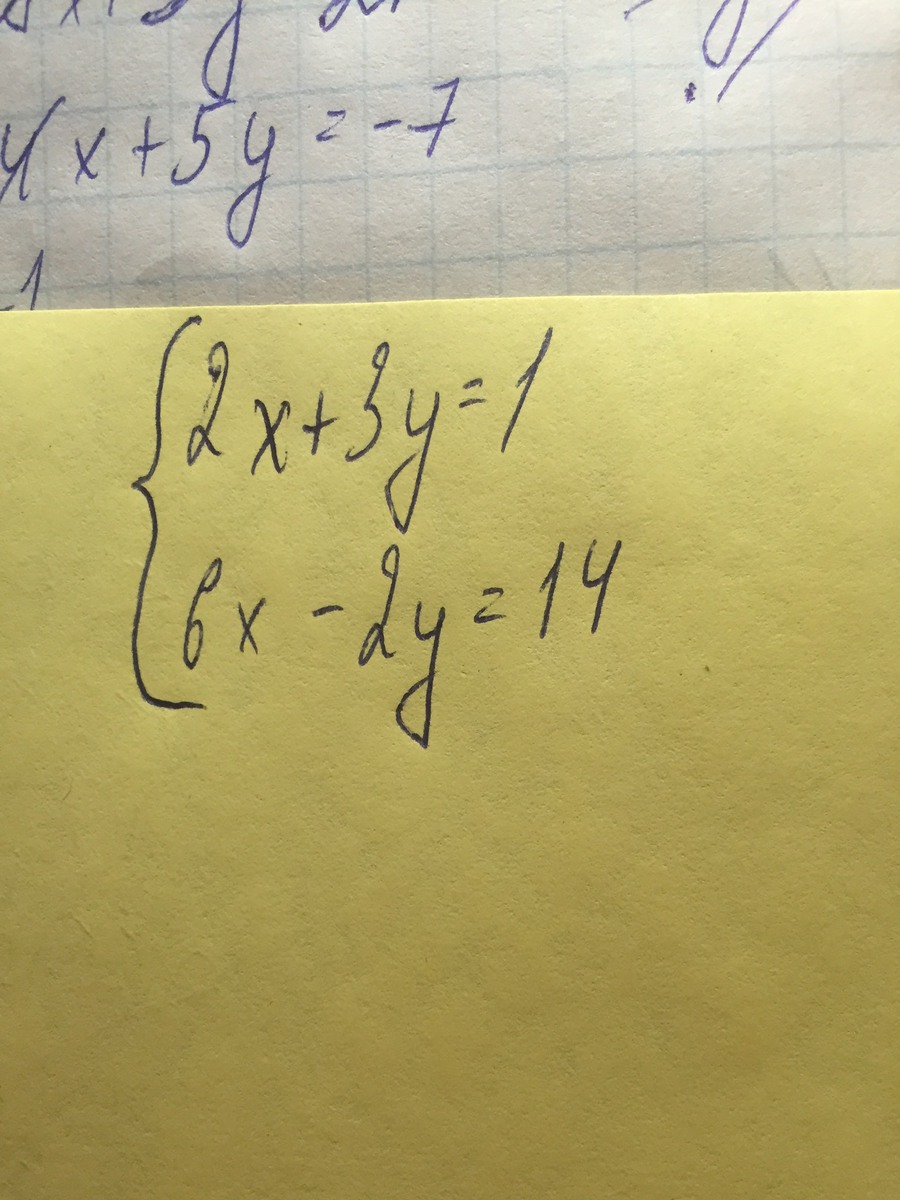 4x+5y=-7
-1
{2x+3y=1
6x-2y=14